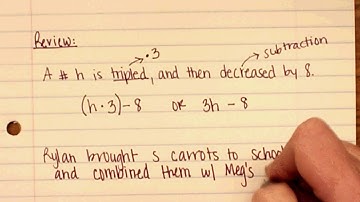 Review:
· 3
subtraction
A # h is tripled, and then decreased by 8.
(h · 3) - 8 or 3h - 8
Rylan brought s carrots to
and combined them w/ Meg's